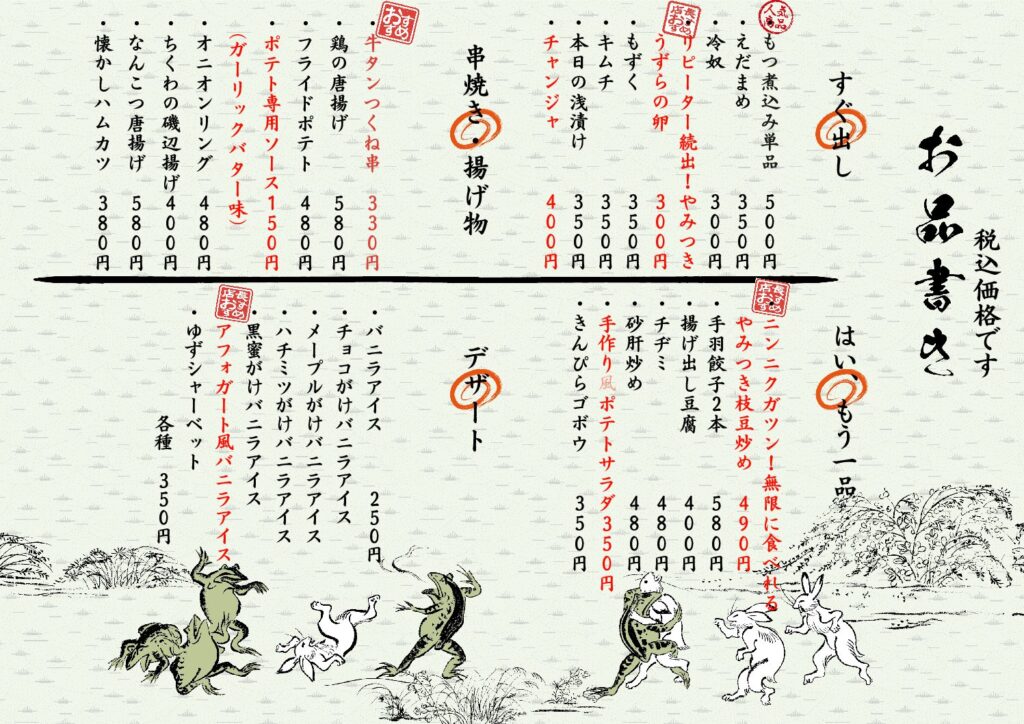 お品書き
税込価格です
すぐ出し
人気商品
・もつ煮込み単品 500円
・えだまめ 350円
・冷奴 300円
店長おすすめ
・リピーター続出!やみつき
うずらの卵 300円
・もずく 350円
・キムチ 350円
・本日の浅漬け 350円
・チャンジャ 400円
串焼き・揚げ物
おすすめ
・牛タンつくね串 330円
・鶏の唐揚げ 580円
・フライドポテト 480円
・ポテト専用ソース150円
(ガーリックバター味)
・オニオンリング 480円
・ちくわの磯辺揚げ 400円
・なんこつ唐揚げ 580円
・懐かしハムカツ 380円
はい、もう一品
店長おすすめ
・ニンニクガツン!無限に食べれる
やみつき枝豆炒め 490円
・手羽餃子2本 580円
・揚げ出し豆腐 400円
・チヂミ 480円
・砂肝炒め 480円
・手作り風ポテトサラダ350円
・きんぴらゴボウ 350円
デザート
・バニラアイス 250円
・チョコがけバニラアイス
・メープルがけバニラアイス
・ハチミツがけバニラアイス
・黒蜜がけバニラアイス
店長おすすめ
・アフォガート風バニラアイス
・ゆずシャーベット
各種 350円